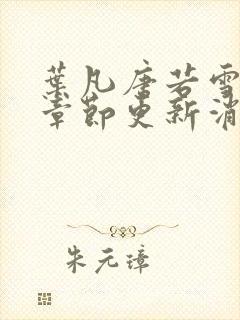 葉凡唐若雪
章節更新消
朱元璋